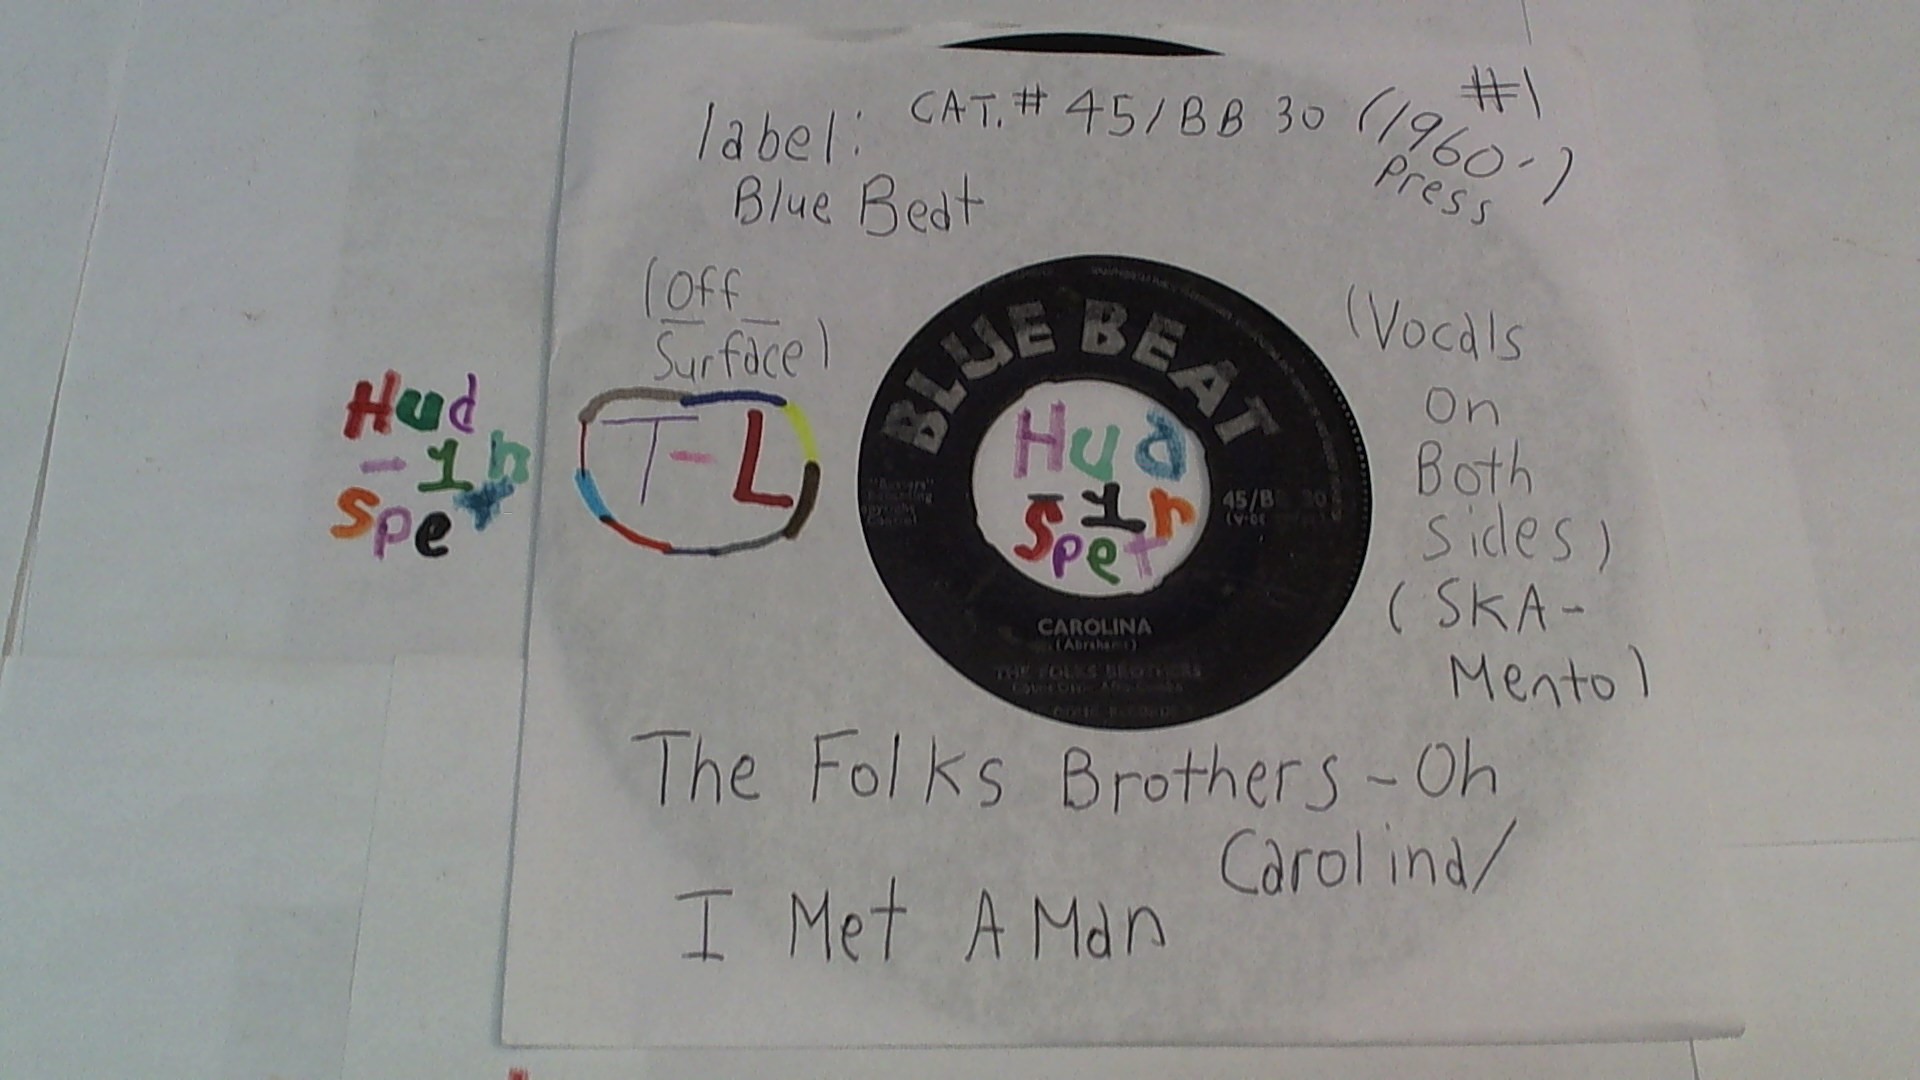 #1
CAT. # 45/BB 30 (1960-)
Press
label:
Blue Beat
(Off
Surface)
Hud
-1n
Spet
T-L
BLUE BEAT
Hud
-1n
Spet
45/B 30
CAROLINA
(Abrahams)
THE FOLKS BROTHERS
(Vocals
on
Both
sides)
(SKA-
Mento)
The Folks Brothers - Oh
Carolina/
I Met A Man